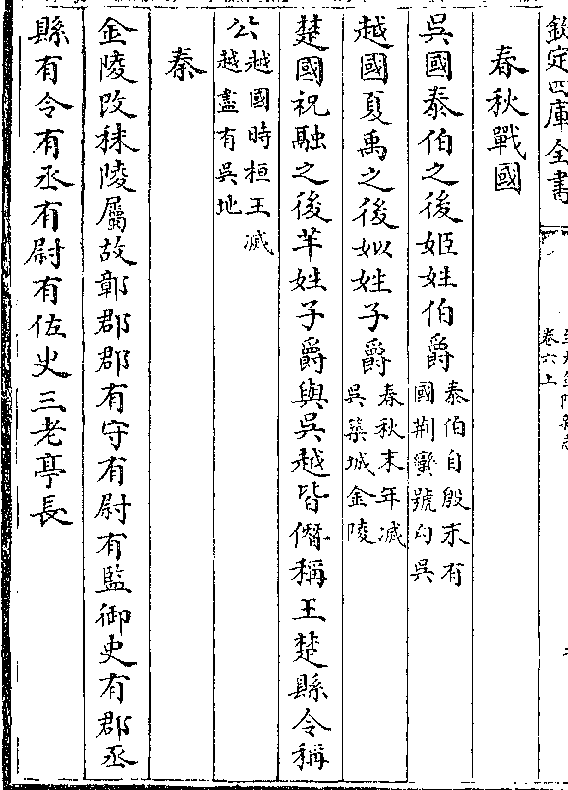 欽定四庫全書
卷六上
春秋戰國
吳國泰伯之後姬姓伯爵泰伯自殷末有國荆蠻號勾吳
越國夏禹之後姒姓子爵春秋末年滅吳築城金陵
楚國祝融之後芊姓子爵與吳越皆僭稱王楚縣令稱
公越國時桓王滅越盡有吳地
秦
金陵改秣陵屬故鄣郡郡有守有尉有監御史有郡丞
縣有令有丞有尉有佐史三老亭長